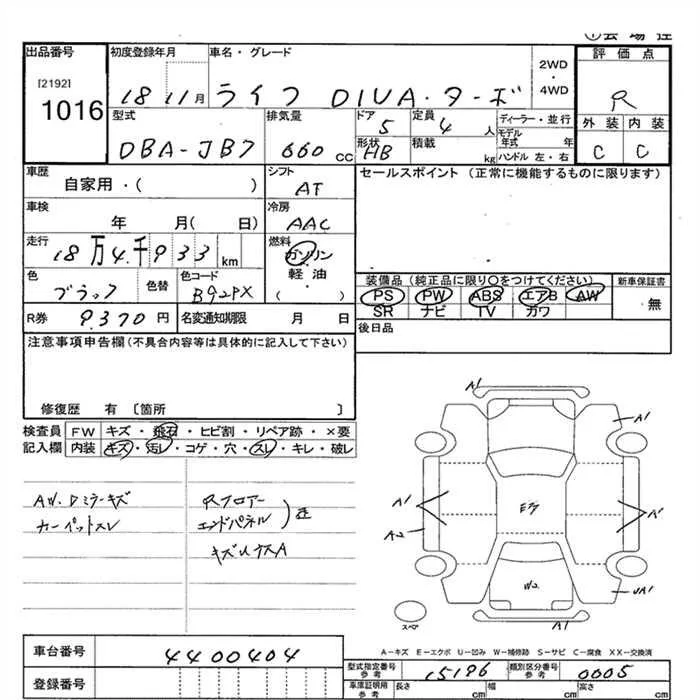 出品番号 初度登録年月 車名・グレード 評価点
[2192]
1016
18 11月 ライフ DIVA・ターボ 2WD・4WD R
型式 排気量 ドア 定員 ディーラー・並行 外装 内装
DBA-JB7 660cc 5 4人 モデル年式 年 C C
形状 HB 積載 kg ハンドル 左・右
車歴 シフト セールスポイント (正常に機能するものに限ります)
自家用・( ) AT
車検 冷房
年 月( 日) AAC
走行 燃料
18万4千933km ガソリン
軽油
( )
色 色替 色コード
ブラック B92PX
装備品 (純正品に限り○をつけてください) 新車保証書
PS PW ABS エアB AW 無
SR ナビ TV カワ
R券 9,370円 名変通知期限 月 日 後日品
注意事項申告欄 (不具合内容等は具体的に記入して下さい)
修復歴 有 [箇所 ]
検査員 FW キズ・飛石・ヒビ割・リペア跡・×要
記入欄 内装 キズ・汚レ・コゲ・穴・スレ・キレ・破レ
AW.Dミラーキズ
カーペットスレ
Rフロアー
エンドパネル
A1
A1
A1
A2
A1
W2
UA1
A1
スペア
A-キズ E-エクボ U-凹み W-補修跡 S-サビ C-腐食 XX-交換済
車台番号 4400404
登録番号
型式指定番号 参考 15196 類別区分番号 参考 0005
車庫証明用 参考 長さ cm 幅 cm 高さ cm